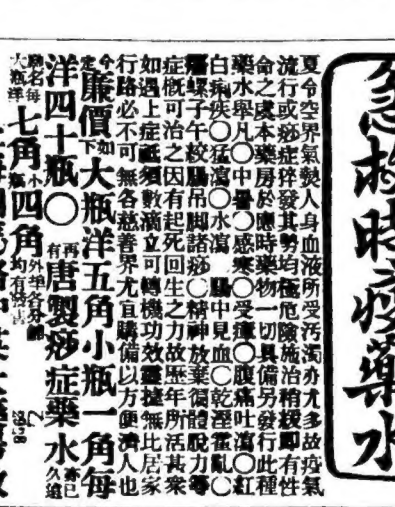 急救時疫藥水
夏令空界氣熱人身血液所受污濁亦尤多故疫氣
流行或痧症猝發其勢均極危險施治稍緩即有性
命之處本藥房於應時藥物一切具備另發行此種
藥水舉凡○中暑○感寒○受瘴○腹痛吐瀉○紅
白痢疾○猛瀉○水瀉○腸中見血○乾溼霍亂○
癟螺子午絞腸吊脚諸痧○精神放棄復體脫力等
症概可治之因有起死回生之力故歷年所活甚衆
如遇上症祗須數滴立可轉機功效靈捷無比居家
行路必不可無各慈善界尤宜購備以方便濟人也
今定廉價如下大瓶洋五角小瓶一角每
洋四十瓶○再有唐製痧症藥水亦已久遠
馳名每大瓶洋七角小瓶四角外埠各分館均有發售